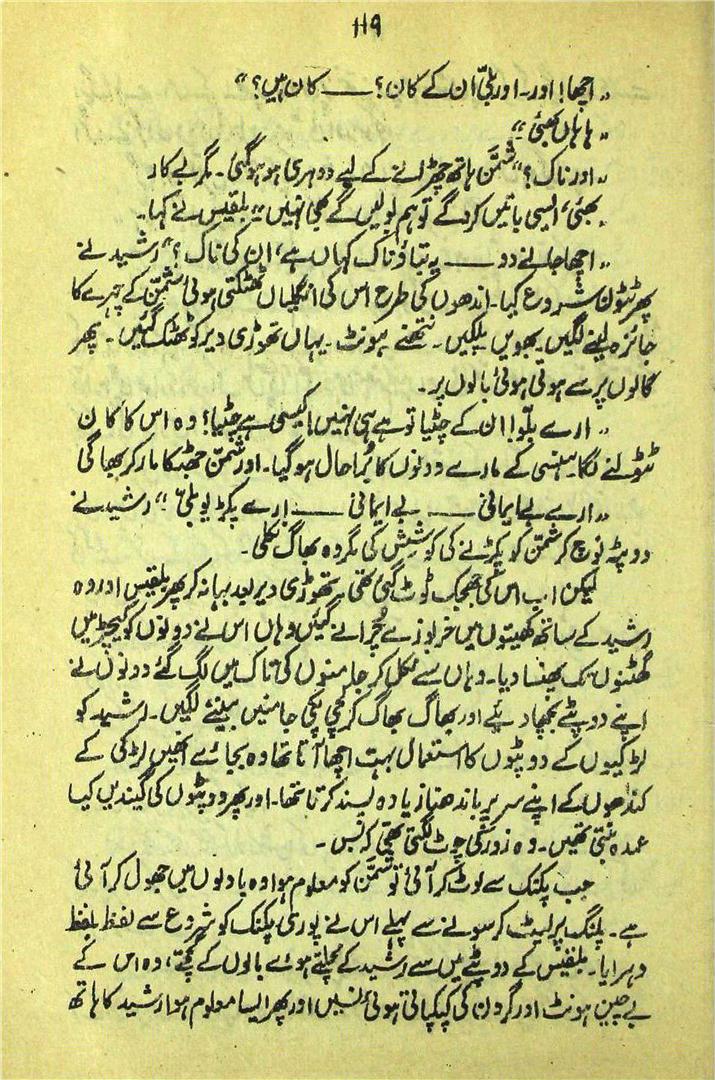 ۱۱۹
"اچھا! اور۔ اور بلّی ان کے کان؟ ــــ کان ہیں؟"
"ہاں ہاں بھئی۔"
"اور ناک؟" شمّن ہاتھ چھڑانے کے لیے دوہری ہو ہو گئی۔ مگر بے کار
"بھئی، ایسی باتیں کرو گے تو ہم بولیں گے بھی نہیں۔" بلقیس نے کہا۔
"اچھا جانے دو ــــ یہ بتاؤ ناک کہاں ہے، ان کی ناک؟" رشید نے
پھر ٹٹولنا شروع کیا۔ اندھوں کی طرح اس کی انگلیاں ٹھٹکتی ہوئی شمّن کے چہرے کا
جائزہ لینے لگیں۔ بھویں پلکیں۔ نتھنے ہونٹ۔ یہاں تھوڑی دیر کو ٹھٹک گئیں۔ پھر
گالوں پر سے ہوتی ہوئی بالوں پر۔
"ارے بلّو! ان کے چٹیا تو ہے ہی نہیں! کیسی ہے چٹیا؟ وہ اس کا کان
ٹٹولنے لگا۔ ہنسی کے مارے دونوں کا بُرا حال ہو گیا۔ اور شمّن جھٹکا مار کر بھاگی
"ارے بے ایمانی ــــ بے ایمانی ــــ ارے پکڑیو بلّی۔" رشید نے
دوپٹہ نوچ کر شمّن کو پکڑنے کی کوشش کی مگر وہ بھاگ نکلی۔
لیکن اب اس کی جھجک ٹوٹ گئی تھی۔ تھوڑی دیر بعد بہانہ کر پھر بلقیس اور وہ
رشید کے ساتھ کھیتوں میں خربوزے چُرانے گئیں وہاں اس نے دونوں کو کیچڑ میں
گھٹنوں تک پھنسا دیا۔ وہاں سے نکل کر جامنوں کی تاک میں لگ گئے دونوں نے
اپنے دوپٹے بچھا دیئے اور بھاگ بھاگ کر کچی پکی جامنیں بیننے لگیں۔ رشید کو
لڑکیوں کے دوپٹوں کا استعمال بہت اچھا آتا تھا وہ بجائے انھیں لڑکی کے
کندھوں کے اپنے سر پر باندھنا زیادہ پسند کرتا تھا۔ اور پھر دوپٹوں کی گیندیں کیا
عمدہ بنتی تھیں۔ وہ زور کی چوٹ لگتی تھی کہ بس۔
جب پکنک سے لوٹ کر آئی تو شمّن کو معلوم ہوا وہ بادلوں میں جھول کر آئی
ہے۔ پلنگ پر لیٹ کر سونے سے پہلے اس نے پوری پکنک کو شروع سے لفظ بلفظ
دہرایا۔ بلقیس کے دوپٹے میں سے رشید کے مچلتے ہوئے بالوں کے گچھے، وہ اس کے
بے چین ہونٹ اور گردن کی کپکپاتی ہوئی نسیں اور پھر ایسا معلوم ہوا رشید کا ہاتھ